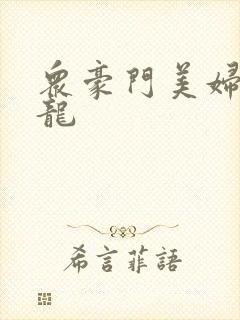 眾豪門美婦
龍
希言菲語